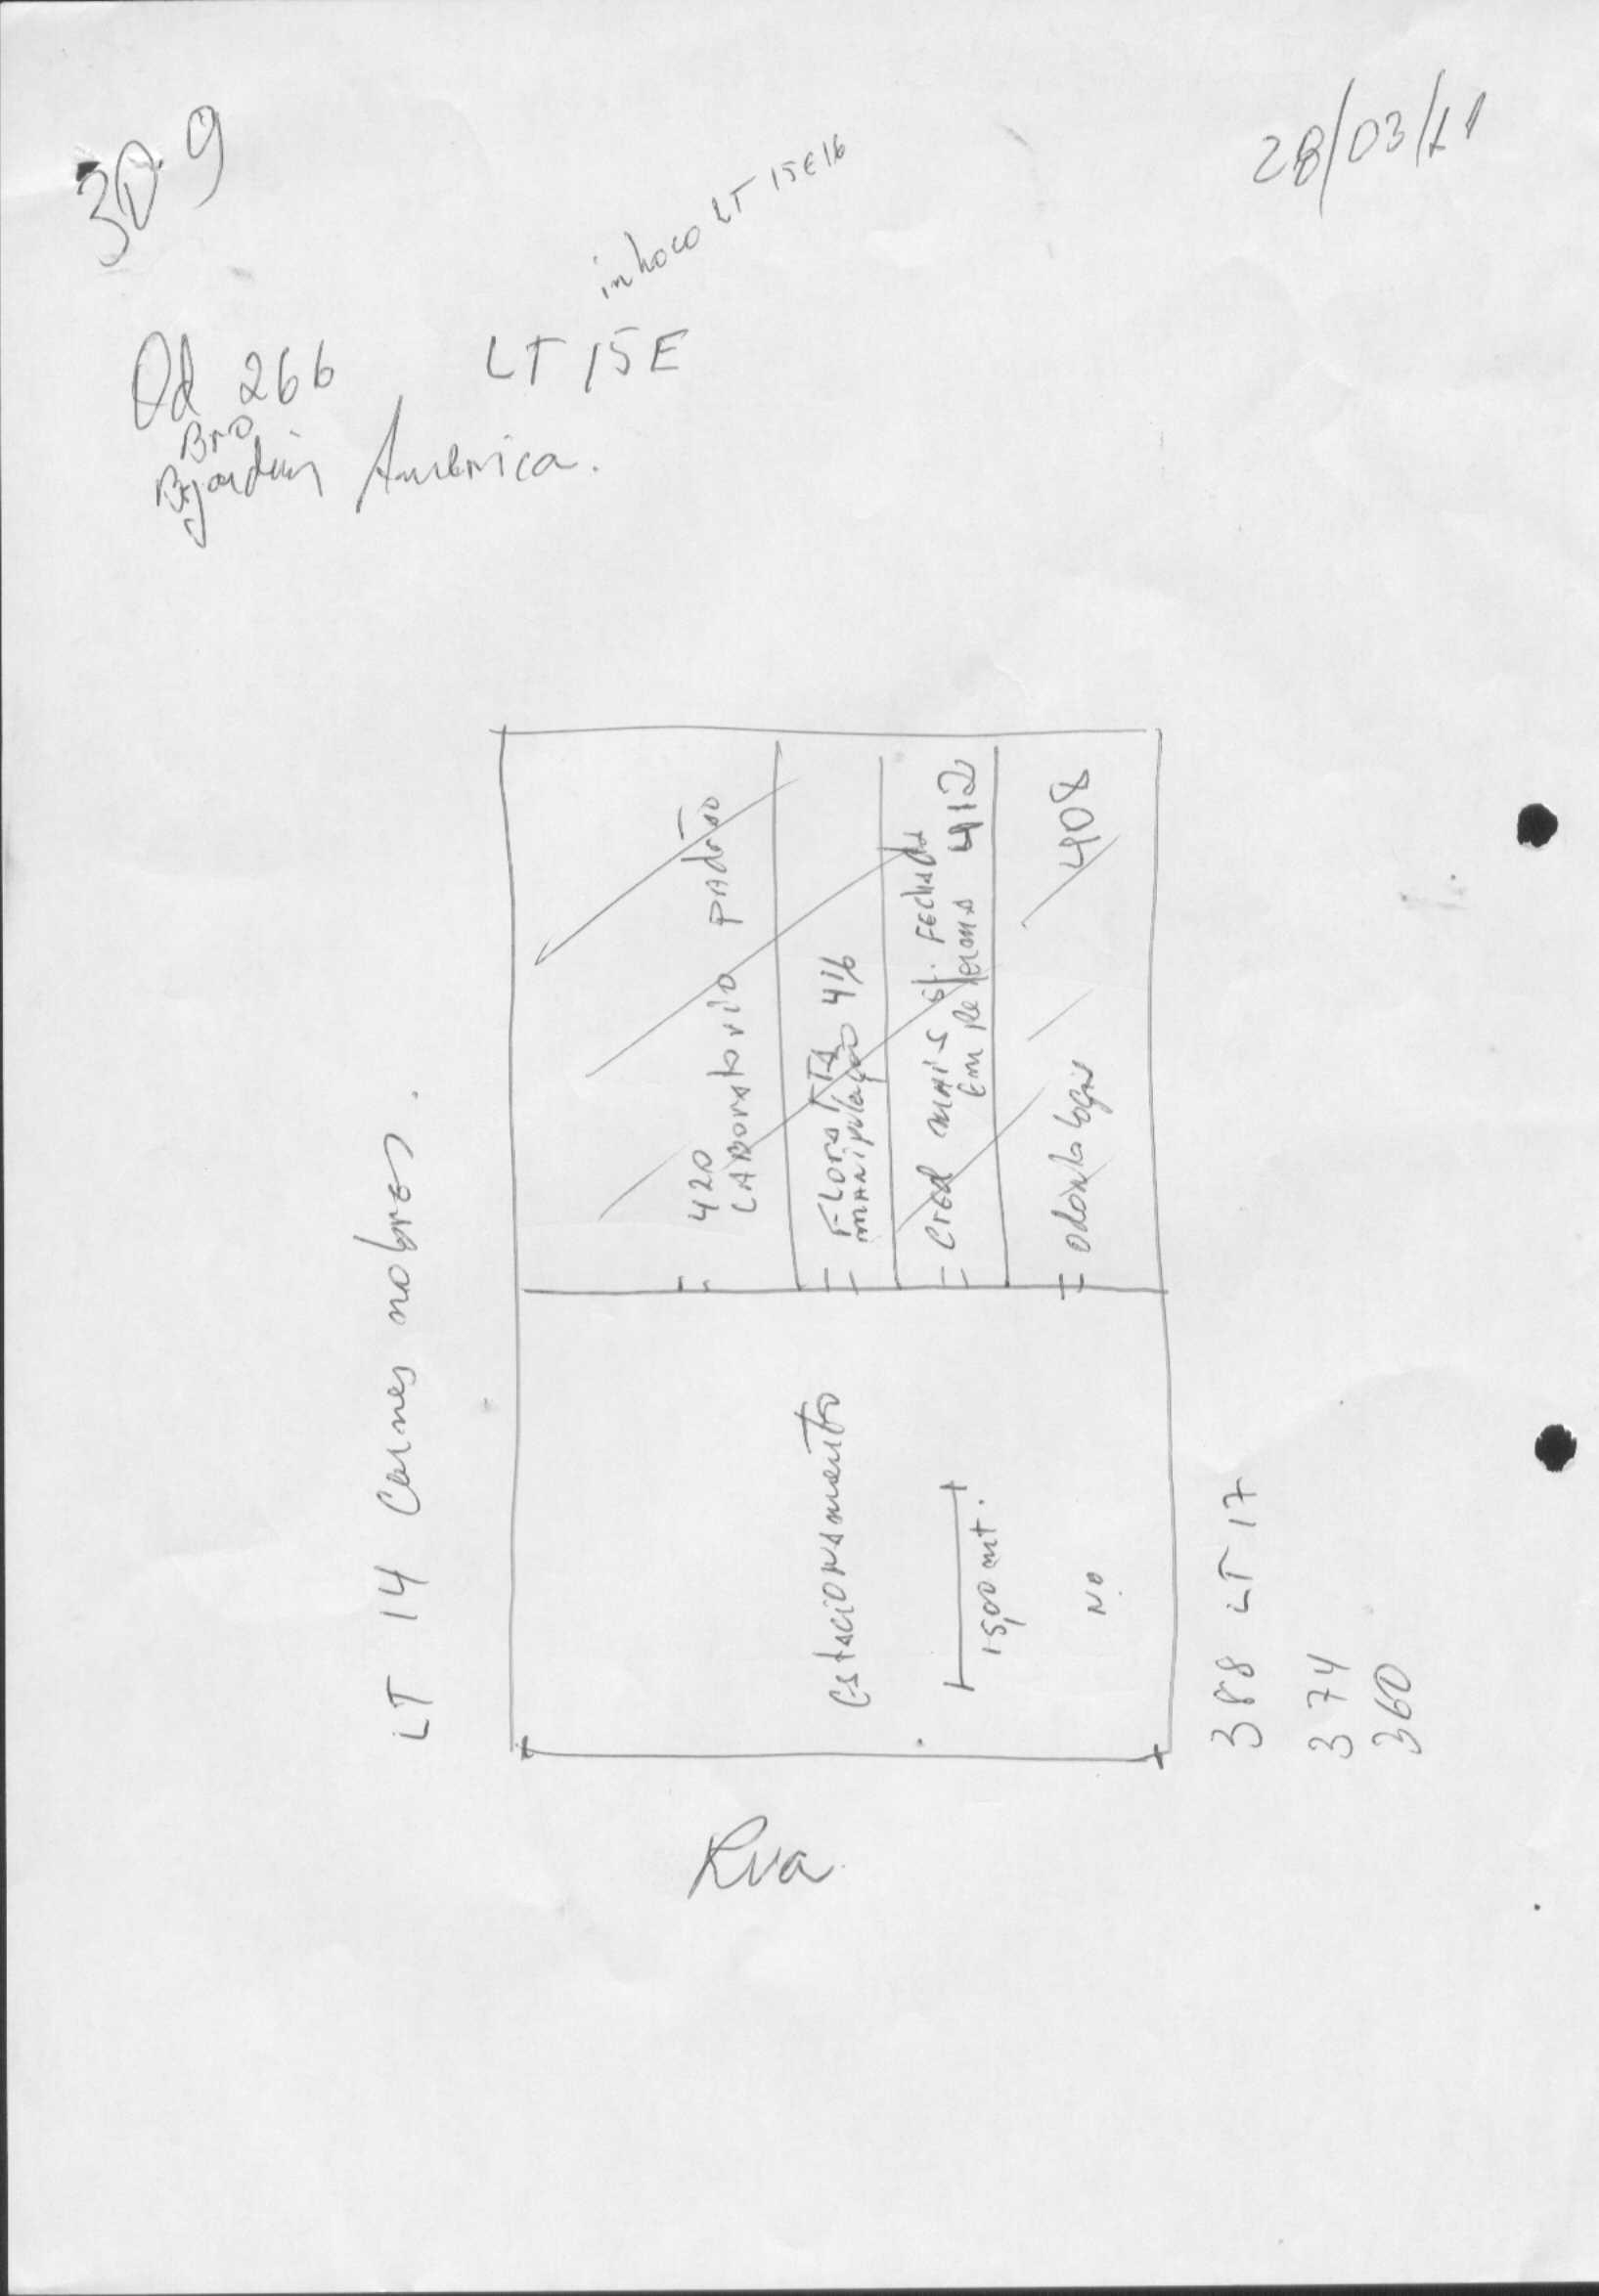 30.9
28/03/11
in loco LT 15E16
Qd 266 LT 15E
Bro
Bjardim América.
LT 14 Carnes nobres.
420
LABoratorio pAdrão
FLora
manipulação 416
Cred mais st. FEchada
Em Reforma 412
odontologia 408
EstacionAmento
15,00 mt.
Nº
388 LT 17
374
360
Rua